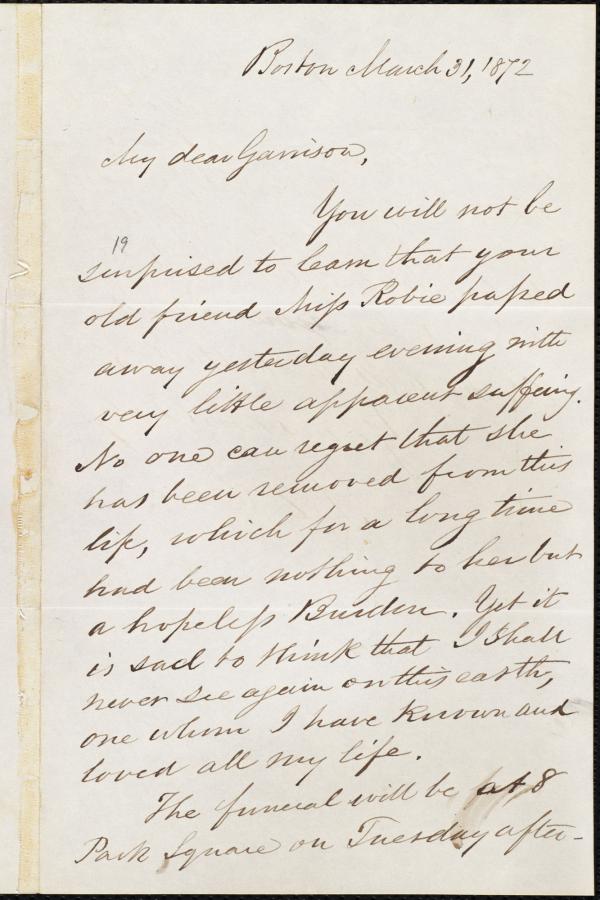 Boston March 31, 1872
My dear Garrison,
You will not be
19
surprised to learn that your
old friend Miss Robie passed
away yesterday evening with
very little apparent suffering.
No one can regret that she
has been removed from this
life, which for a long time
had been nothing to her but
a hopeless Burden. Yet it
is sad to think that I shall
never see again on this earth,
one whom I have known and
loved all my life.
The funeral will be at 8
Park Square on Tuesday after-